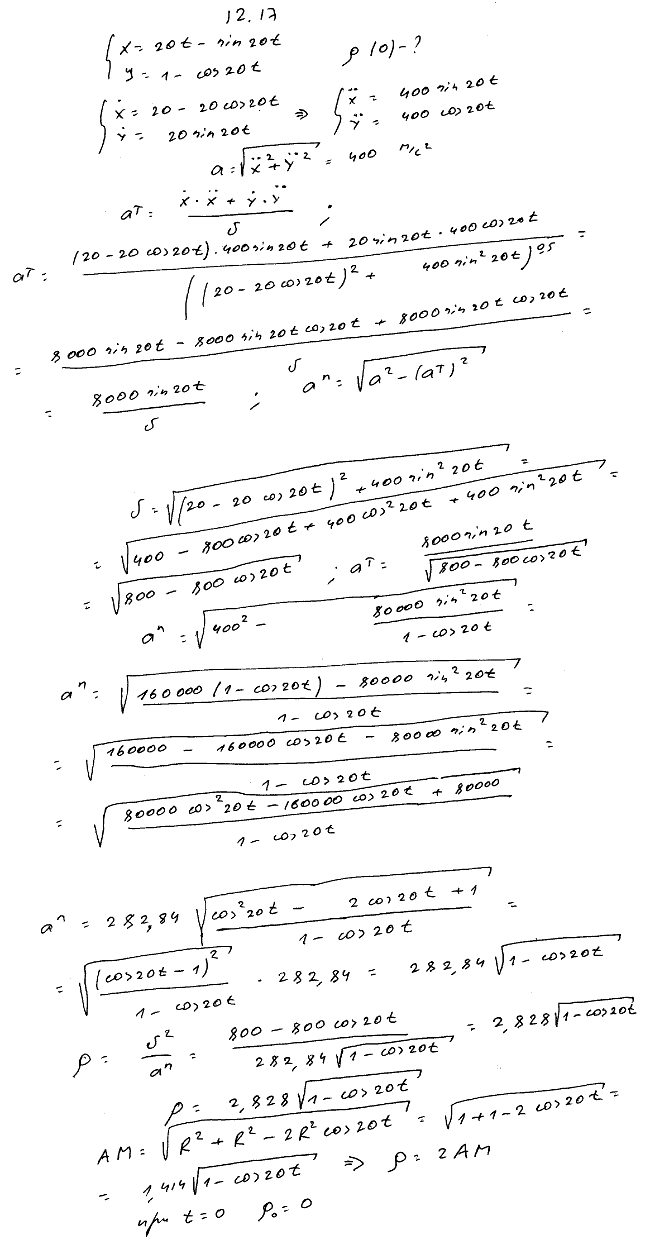 12.17
{ x = 20t - sin 20t
y = 1 - cos 20t
ρ(0) - ?
{ ẋ = 20 - 20 cos 20t ⇒ { ẍ = 400 sin 20t
ẏ = 20 sin 20t ÿ = 400 cos 20t
a = √(ẍ² + ÿ²) = 400 м/с²
aᵀ = (ẋ · ẍ + ẏ · ÿ) / υ ;
aᵀ = ((20 - 20 cos 20t) · 400 sin 20t + 20 sin 20t · 400 cos 20t) / ((20 - 20 cos 20t)² + 400 sin² 20t)^0.5 =
= (8000 sin 20t - 8000 sin 20t cos 20t + 8000 sin 20t cos 20t) / υ =
= 8000 sin 20t / υ ; aⁿ = √(a² - (aᵀ)²)
υ = √((20 - 20 cos 20t)² + 400 sin² 20t) =
= √(400 - 800 cos 20t + 400 cos² 20t + 400 sin² 20t) =
= √(800 - 800 cos 20t) ; aᵀ = 8000 sin 20t / √(800 - 800 cos 20t)
aⁿ = √(400² - 80000 sin² 20t / (1 - cos 20t)) =
aⁿ = √((160000 (1 - cos 20t) - 80000 sin² 20t) / (1 - cos 20t)) =
= √((160000 - 160000 cos 20t - 80000 sin² 20t) / (1 - cos 20t)) =
= √((80000 cos² 20t - 160000 cos 20t + 80000) / (1 - cos 20t))
aⁿ = 282,84 √((cos² 20t - 2 cos 20t + 1) / (1 - cos 20t)) =
= √((cos 20t - 1)² / (1 - cos 20t)) · 282,84 = 282,84 √(1 - cos 20t)
ρ = υ² / aⁿ = (800 - 800 cos 20t) / (282,84 √(1 - cos 20t)) = 2,828 √(1 - cos 20t)
ρ = 2,828 √(1 - cos 20t)
AM = √(R² + R² - 2R² cos 20t) = √(1 + 1 - 2 cos 20t) =
= 1,414 √(1 - cos 20t) ⇒ ρ = 2AM
при t = 0 ρ₀ = 0